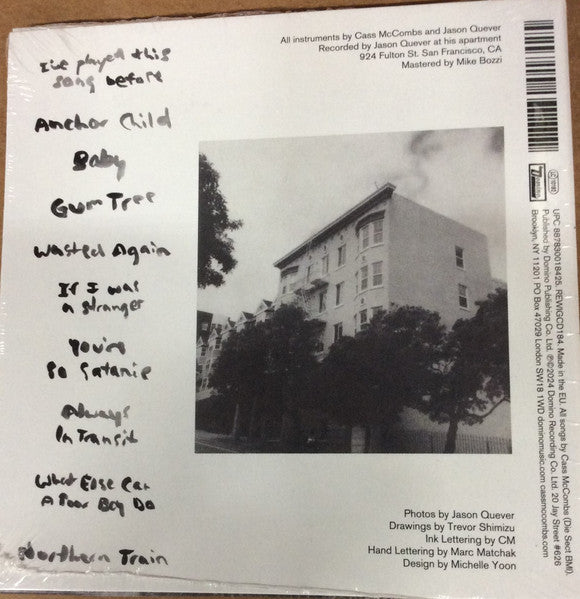 I've played this
song before
Anchor Child
Baby
Gum Tree
Wasted Again
If I was
a stranger
You're
So Satanic
Always
In Transit
What Else Can
A Poor Boy Do
Northern Train
All instruments by Cass McCombs and Jason Quever
Recorded by Jason Quever at his apartment
924 Fulton St. San Francisco, CA
Mastered by Mike Bozzi
Photos by Jason Quever
Drawings by Trevor Shimizu
Ink Lettering by CM
Hand Lettering by Marc Matchak
Design by Michelle Yoon
UPC 887830018425. REWIGCD184. Made in the EU. All songs by Cass McCombs (Die Sect BMI).
Published by Domino Publishing Co. Ltd. ℗©2024 Domino Recording Co. Ltd. 20 Jay Street #626
Brooklyn, NY 11201 PO Box 47029 London SW18 1WD dominomusic.com cassmccombs.com